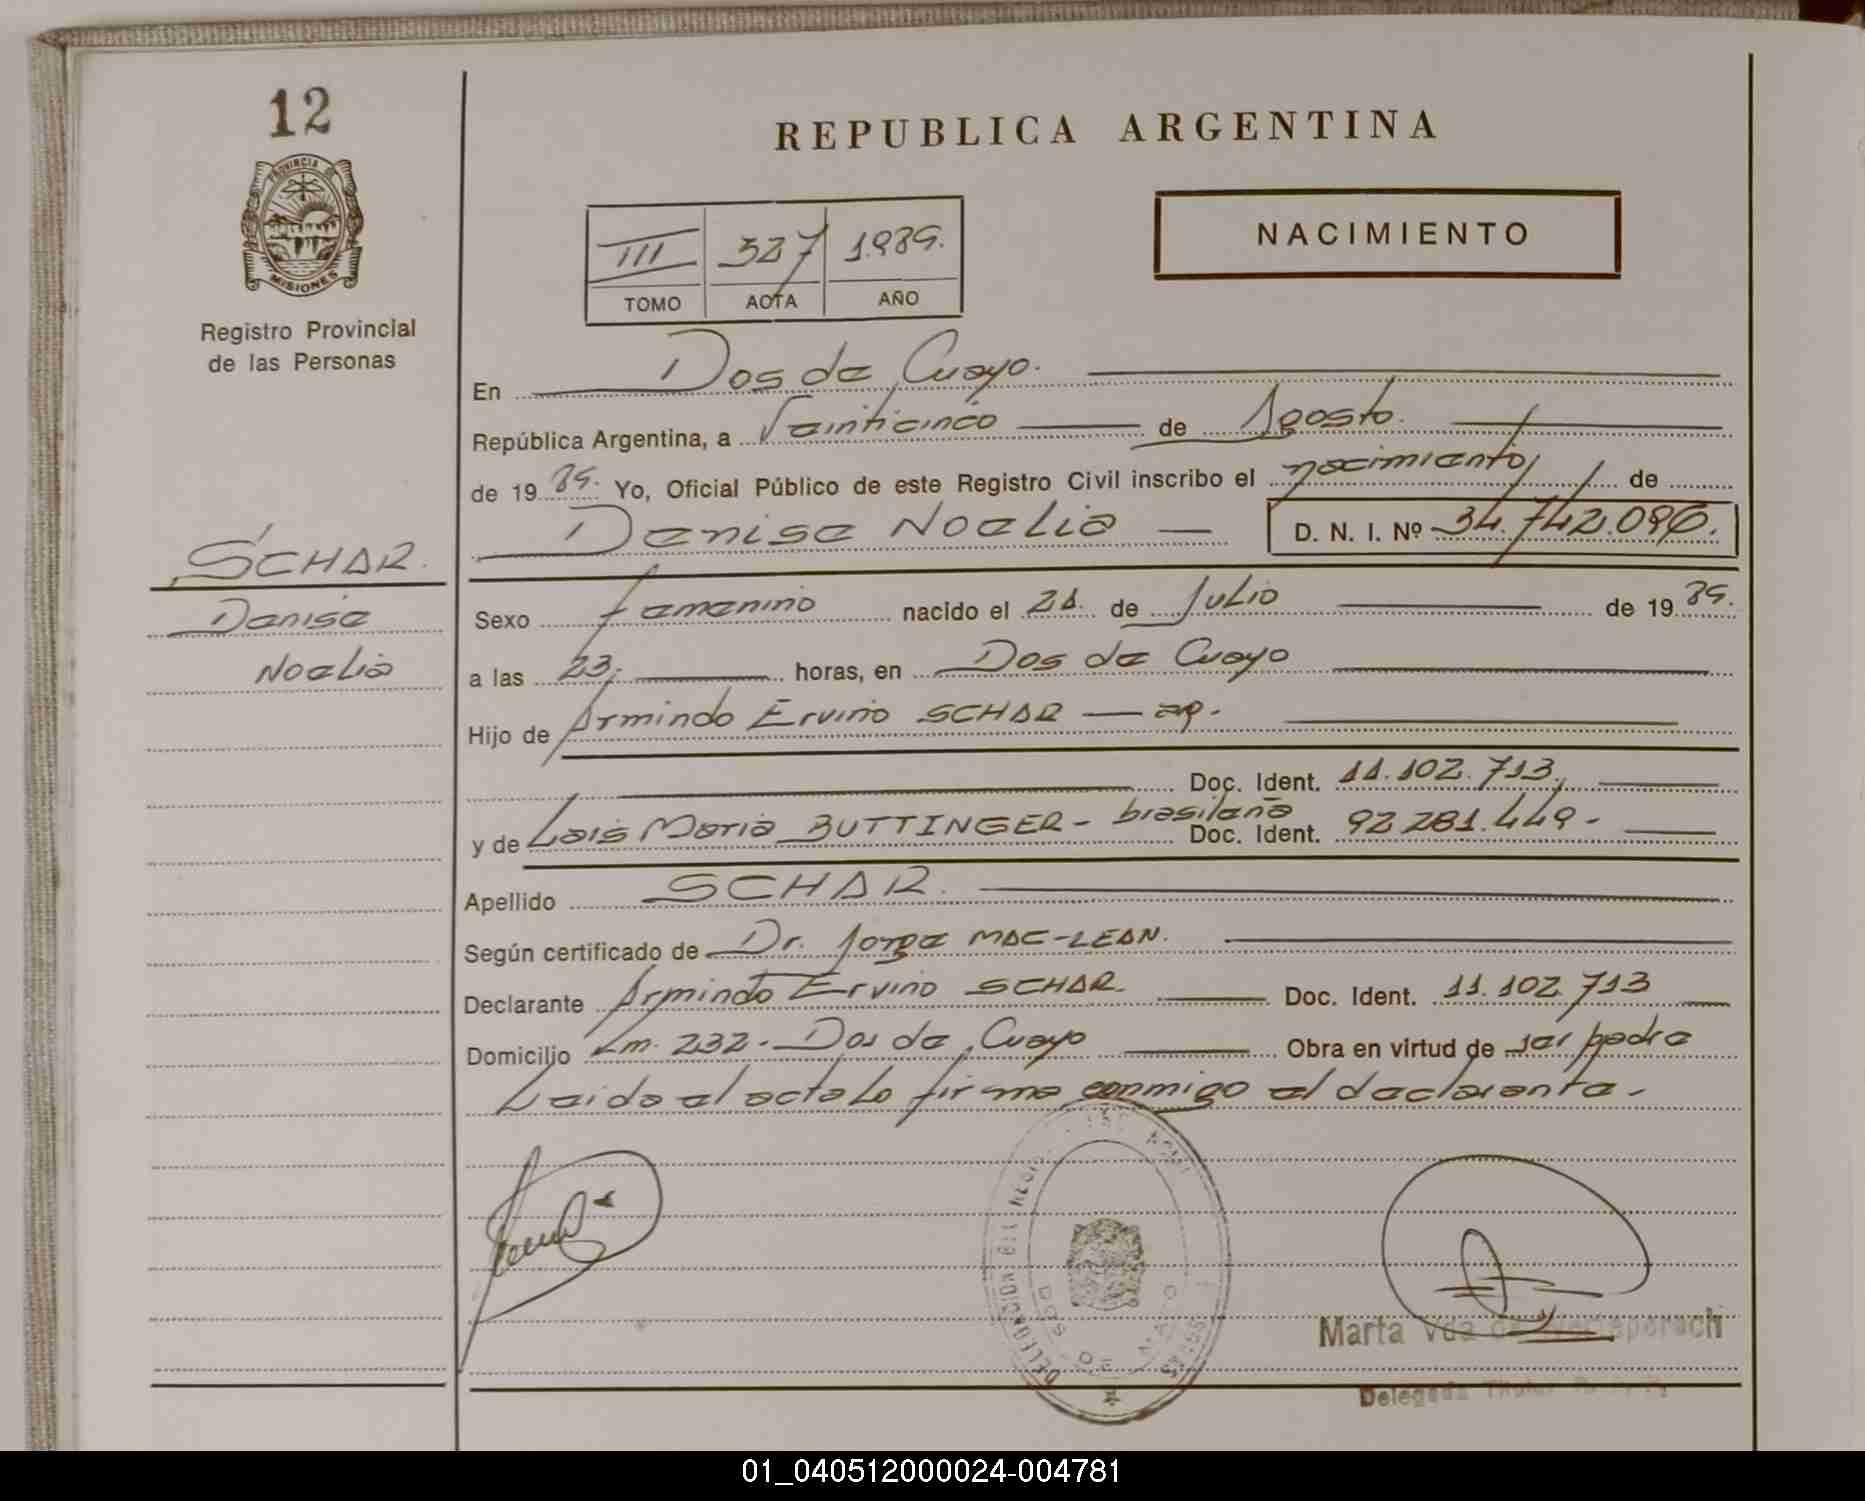 12
PROVINCIA DE
MISIONES
Registro Provincial
de las Personas
SCHAR.
Denise
Noelia
REPUBLICA ARGENTINA
III 327 1.989.
TOMO ACTA AÑO
NACIMIENTO
En Dos de Cuayo.
República Argentina, a Veinticinco de Agosto.
de 19 89. Yo, Oficial Público de este Registro Civil inscribo el nacimiento de
Denise Noelia D. N. I. Nº 34.742.096.
Sexo femenino nacido el 21. de Julio de 19 89.
a las 23. horas, en Dos de Cuayo
Hijo de Armindo Ervino SCHAR — ar.
Doc. Ident. 11.102.713.
y de Lais Maria BUTTINGER - brasileña Doc. Ident. 92.281.449 -
Apellido SCHAR.
Según certificado de Dr. Jorge MAC-LEAN.
Declarante Armindo Ervino SCHAR. Doc. Ident. 11.102.713
Domicilio Km. 232. Dos de Cuayo Obra en virtud de ser padre
Leida el acta lo firma conmigo el declarante.
Marta Vda de
Delegada Titular
01_040512000024-004781